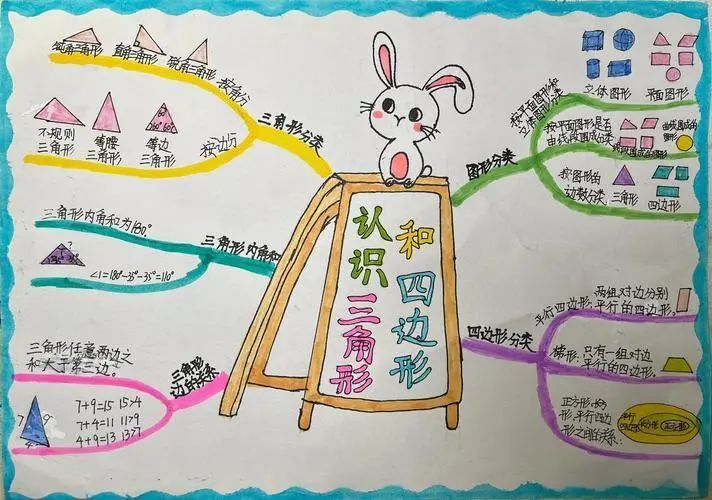 认识三角形
和四边形
三角形分类
按角分
锐角三角形
直角三角形
钝角三角形
按边分
不规则
三角形
等腰
三角形
等边
三角形
60°
60° 60°
三角形内角和
三角形内角和为180°
∠1=180°-35°-35°=110°
三角形
边的关系
三角形任意两边之
和大于第三边。
7 9
4
7+9=15 15>4
7+4=11 11>9
4+9=13 13>7
图形分类
按平面图形和
立体图形分类
立体图形
平面图形
按平面图形是否
由线段围成分类
按图形的
边数分类
三角形
四边形
四边形分类
平行四边形:
两组对边分别
平行的四边形;
梯形:
只有一组对边
平行的四边形.
正方形、长方
形、平行四边
形之间的关系:
平行
四边形
长方形
正方形